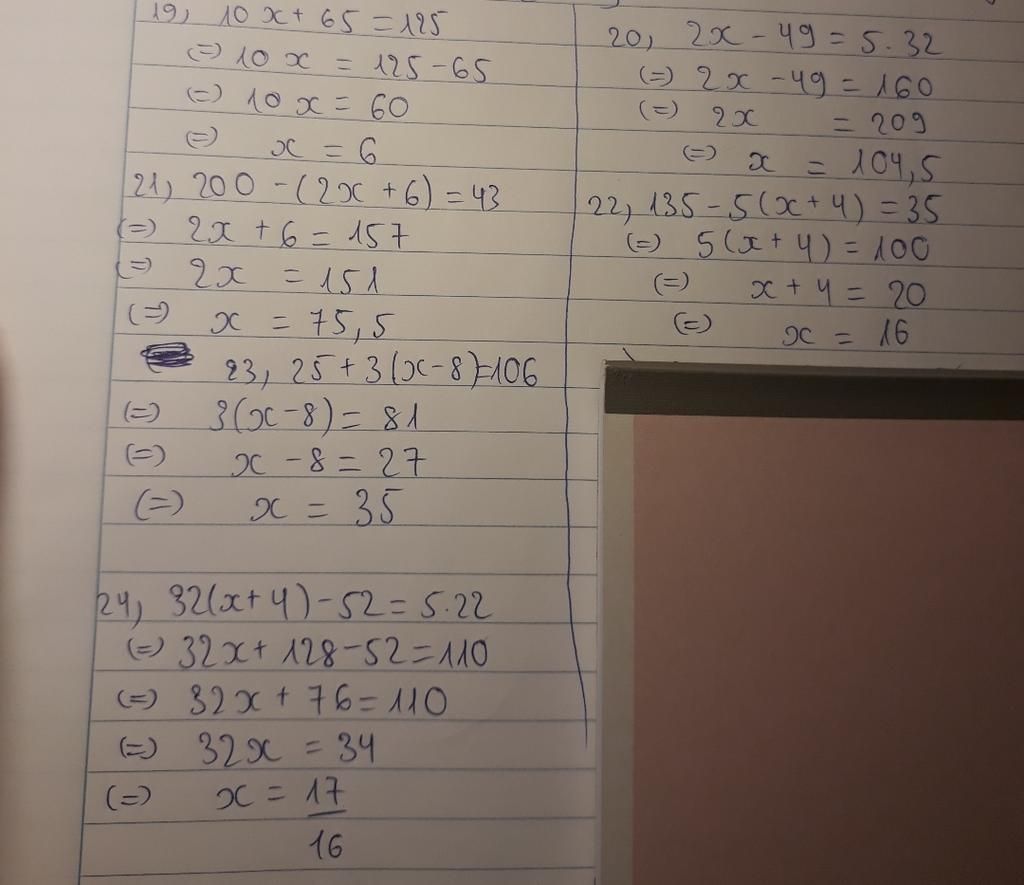 19, 10x + 65 = 125
(=) 10x = 125 - 65
(=) 10x = 60
(=) x = 6
20, 2x - 49 = 5.32
(=) 2x - 49 = 160
(=) 2x = 209
(=) x = 104,5
21, 200 - (2x + 6) = 43
(=) 2x + 6 = 157
(=) 2x = 151
(=) x = 75,5
22, 135 - 5(x + 4) = 35
(=) 5(x + 4) = 100
(=) x + 4 = 20
(=) x = 16
23, 25 + 3(x - 8) = 106
(=) 3(x - 8) = 81
(=) x - 8 = 27
(=) x = 35
24, 32(x + 4) - 52 = 5.22
(=) 32x + 128 - 52 = 110
(=) 32x + 76 = 110
(=) 32x = 34
(=) x = 17
16